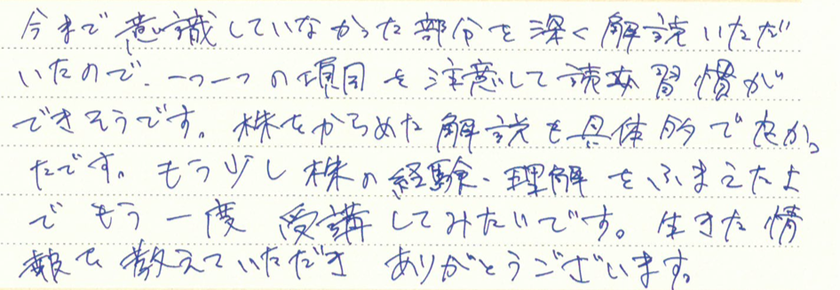 今まで意識していなかった部分を深く解説いただ
いたので、一つ一つの項目を注意して読む習慣が
できそうです。株をからめた解説も具体的で良かっ
たです。もう少し株の経験・理解をふまえたよ
でもう一度受講してみたいです。生きた情
報を教えていただきありがとうございます。